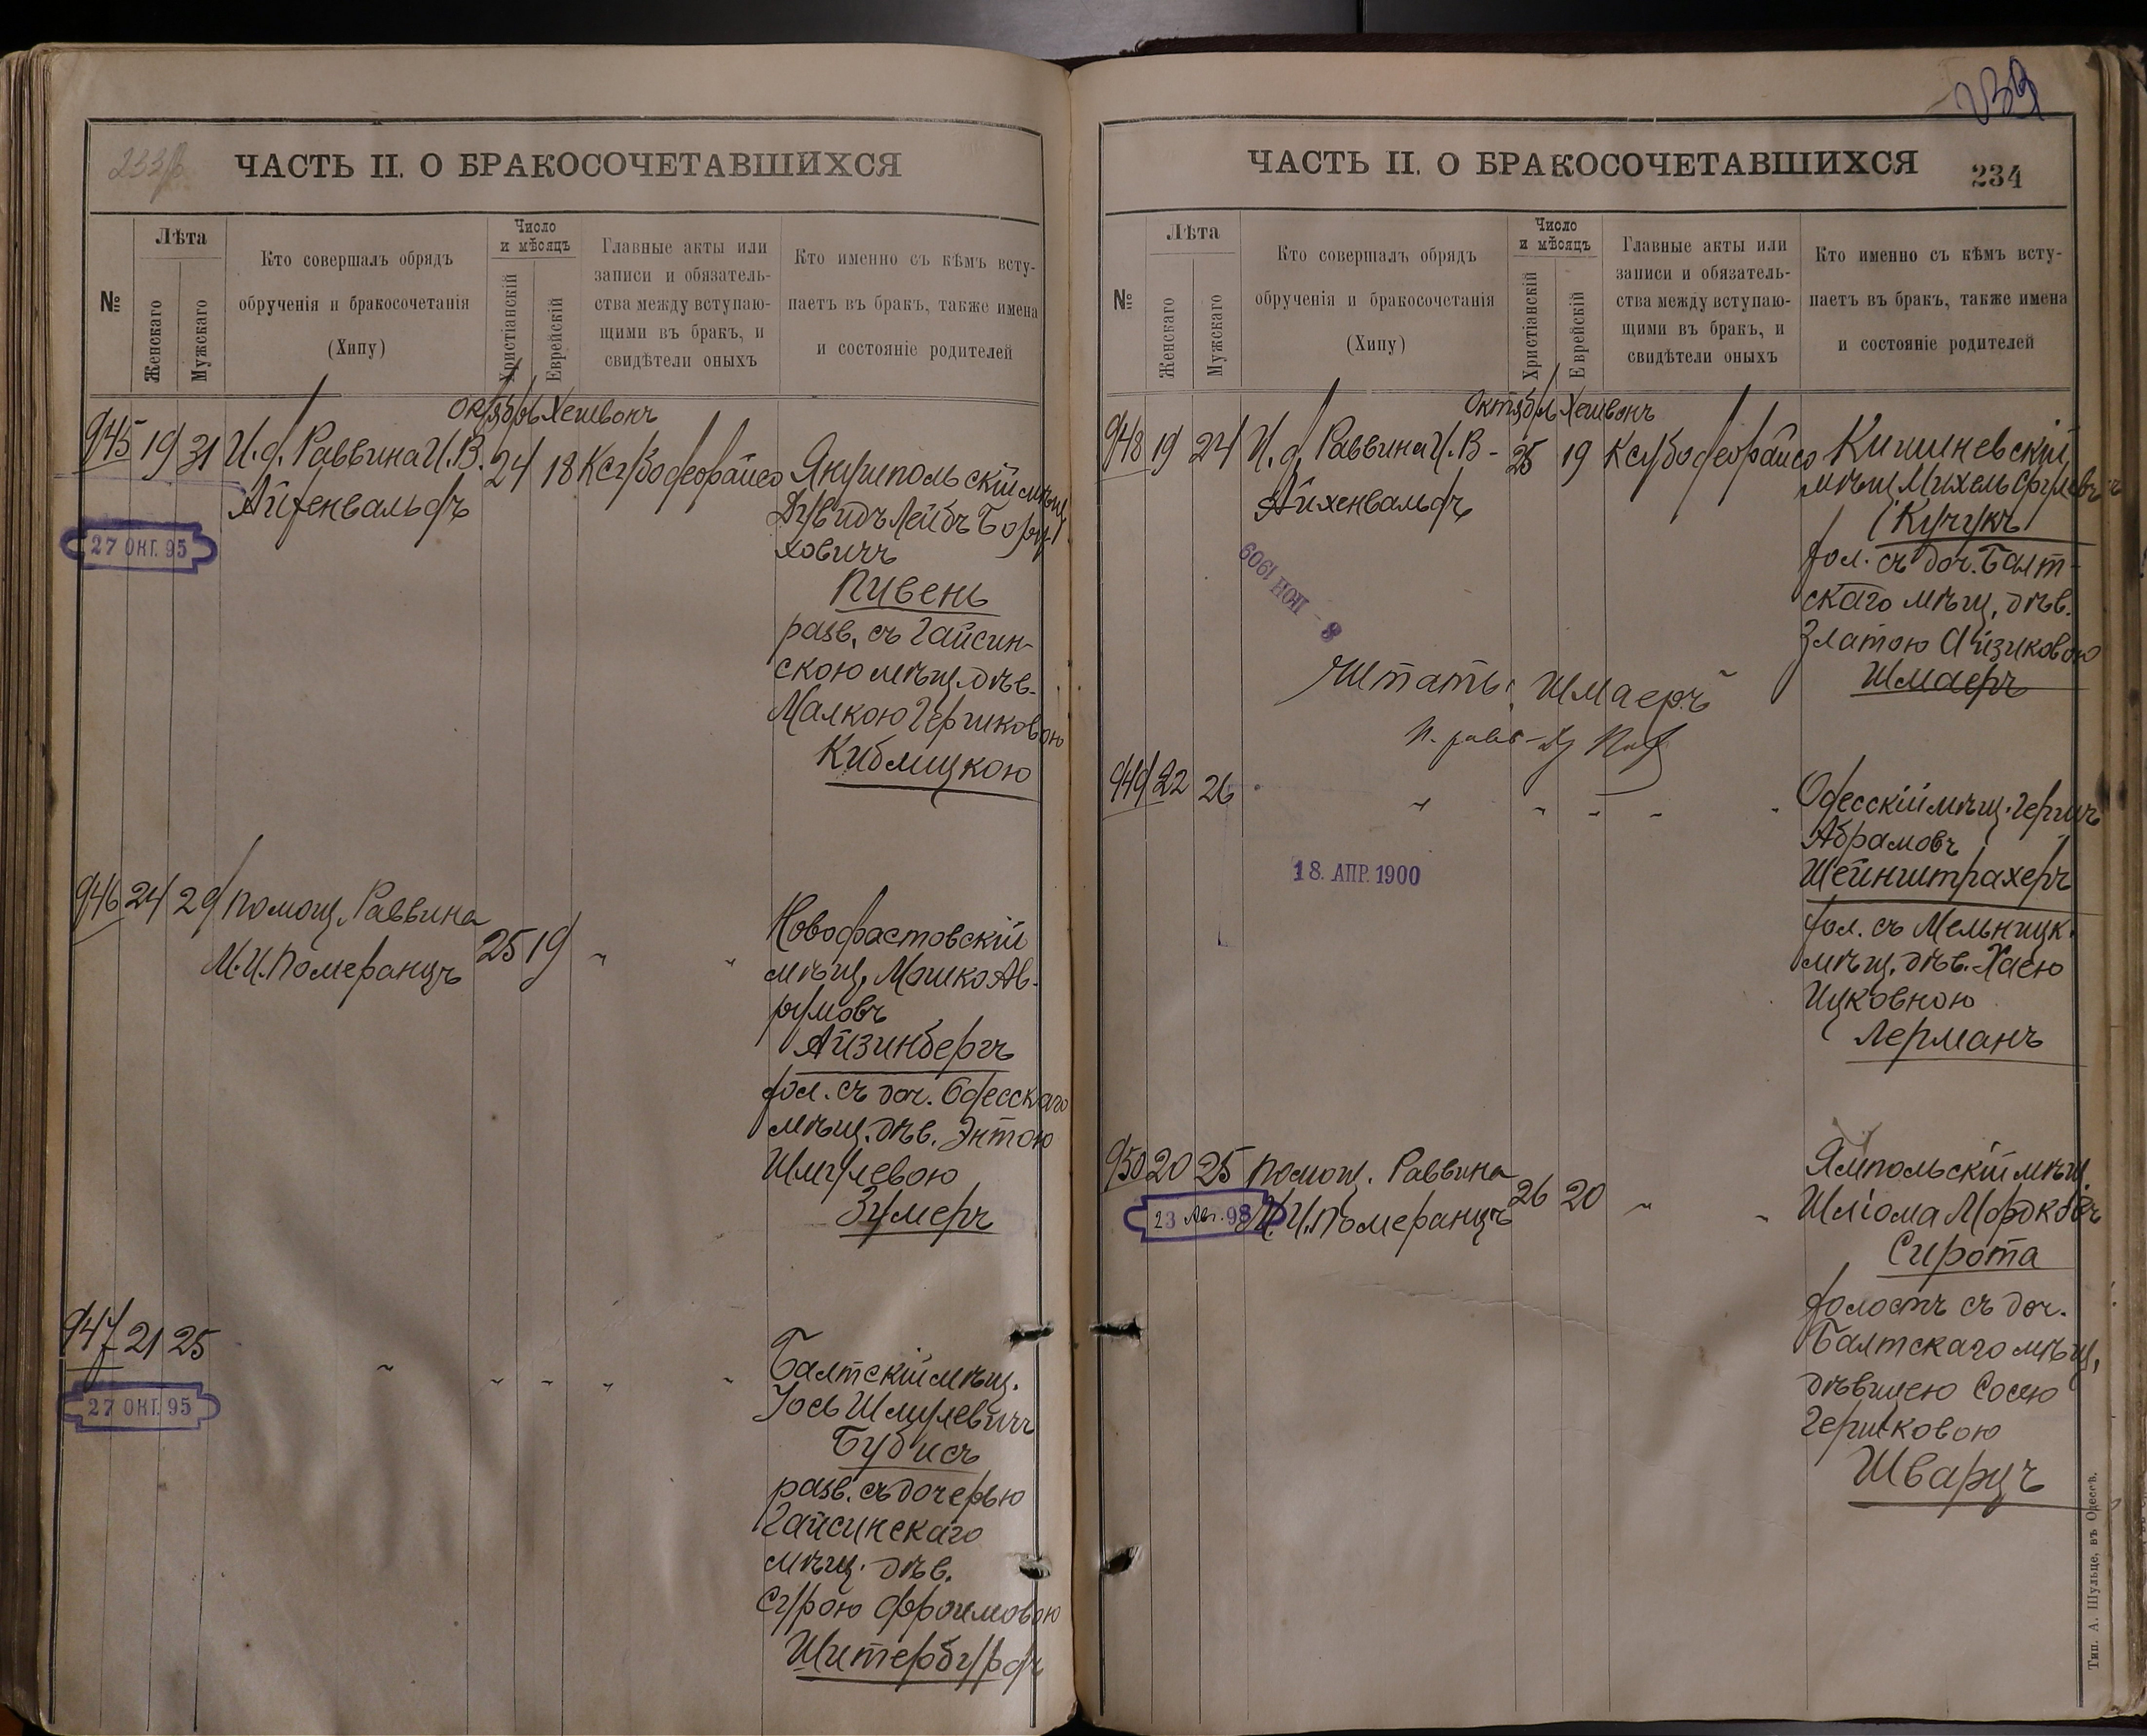 233
ЧАСТЬ II. О БРАКОСОЧЕТАВШИХСЯ
№
Лѣта
Женскаго
Мужскаго
Кто совершалъ обрядъ
обрученія и бракосочетанія
(Хипу)
Число
и мѣсяцъ
Христіанскій
Еврейскій
Главные акты или
записи и обязатель-
ства между вступаю-
щими въ бракъ, и
свидѣтели оныхъ
Кто именно съ кѣмъ всту-
паетъ въ бракъ, также имена
и состояніе родителей
Октябрь Хешвонъ
945 19 31 И.д. Раввина И.В. 24 18
Айхенвальдъ
27 ОКТ. 95
мѣщ.
Дувидъ Лейбъ Бору-
ховичъ
Пивень
разв. съ Гайсин-
скою мѣщ. дѣв.
Малкою Гершковою
Киблицкою
946 24 29 помощ. Раввина 25 19 " "
М.И. Померанцъ
Новофастовскій
мѣщ. Мошко Ав-
румовъ
Айзинбергъ
хол. съ доч. Одесскаго
мѣщ. дѣв. Энтою
Шмулевою
Зумеръ
947 21 25 " " " " " "
27 ОКТ. 95
Балтскій мѣщ.
Іось Шмулевичъ
Бубисъ
разв. съ дочерью
Гайсинскаго
мѣщ. дѣв.
Сурою Фроимовою
Штербурдъ
234
ЧАСТЬ II. О БРАКОСОЧЕТАВШИХСЯ
№
Лѣта
Женскаго
Мужскаго
Кто совершалъ обрядъ
обрученія и бракосочетанія
(Хипу)
Число
и мѣсяцъ
Христіанскій
Еврейскій
Главные акты или
записи и обязатель-
ства между вступаю-
щими въ бракъ, и
свидѣтели оныхъ
Кто именно съ кѣмъ всту-
паетъ въ бракъ, также имена
и состояніе родителей
Октябрь Хешвонъ
948 19 24 И.д. Раввина И.В. 25 19
Айхенвальдъ
8 - ІЮН 1909
Кишиневскій
мѣщ. Михель
Кучукъ
хол. съ доч. Балт-
скаго мѣщ. дѣв.
Златою Айзиковою
Шмаеръ
Шмаеръ
949 22 26 " " " " "
18. АПР. 1900
Одесскій мѣщ. Гершъ
Абрамовъ
Шейнштрахеръ
хол. съ Мельницк.
мѣщ. дѣв. Хаею
Ицковною
Лерманъ
950 20 25 помощ. Раввина 26 20 " "
М.И. Померанцъ
23 Авг. 98
Ямпольскій мѣщ.
Шліома Мордковъ
Сирота
холостъ съ доч.
Балтскаго мѣщ.
дѣвицею Сосею
Гершковою
Шварцъ
Тип. А. Шульце, въ Одессѣ.